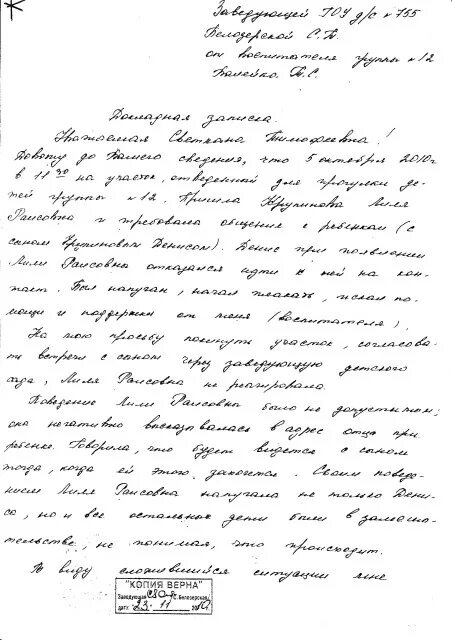 Заведующей ГОУ д/с № 755
Белозерской С.Т.
от воспитателя группы № 12
Калейко Т.С.
Докладная записка.
Уважаемая Светлана Тимофеевна!
Довожу до Вашего сведения, что 5 октября 2010г
в 11 30 на участок, отведенный для прогулки де-
тей группы № 12. Пришла Крупинова Лиля
Раисовна и требовала общения с ребенком (с
сыном Крупиновым Денисом). Денис при появлении
Лили Раисовны отказался идти к ней на кон-
такт. Был напуган, начал плакать, искал по-
мощи и поддержки от меня (воспитателя).
На мою просьбу покинуть участок, согласова-
ть встречи с сыном через заведующую детского
сада, Лиля Раисовна не реагировала.
Поведение Лили Раисовны было не допустимым;
она негативно высказывалась в адрес отца при
ребенке. Говорила, что будет видется с сыном
тогда, когда ей этого захочется. Своим поведе-
нием Лиля Раисовна напугала не только Дени-
са, но и все остальные дети были в замеша-
тельстве, не понимая, что происходит.
В виду сложившийся ситуации мне
"КОПИЯ ВЕРНА"
Заведующая С.Белозерская
дата 23.11 2010